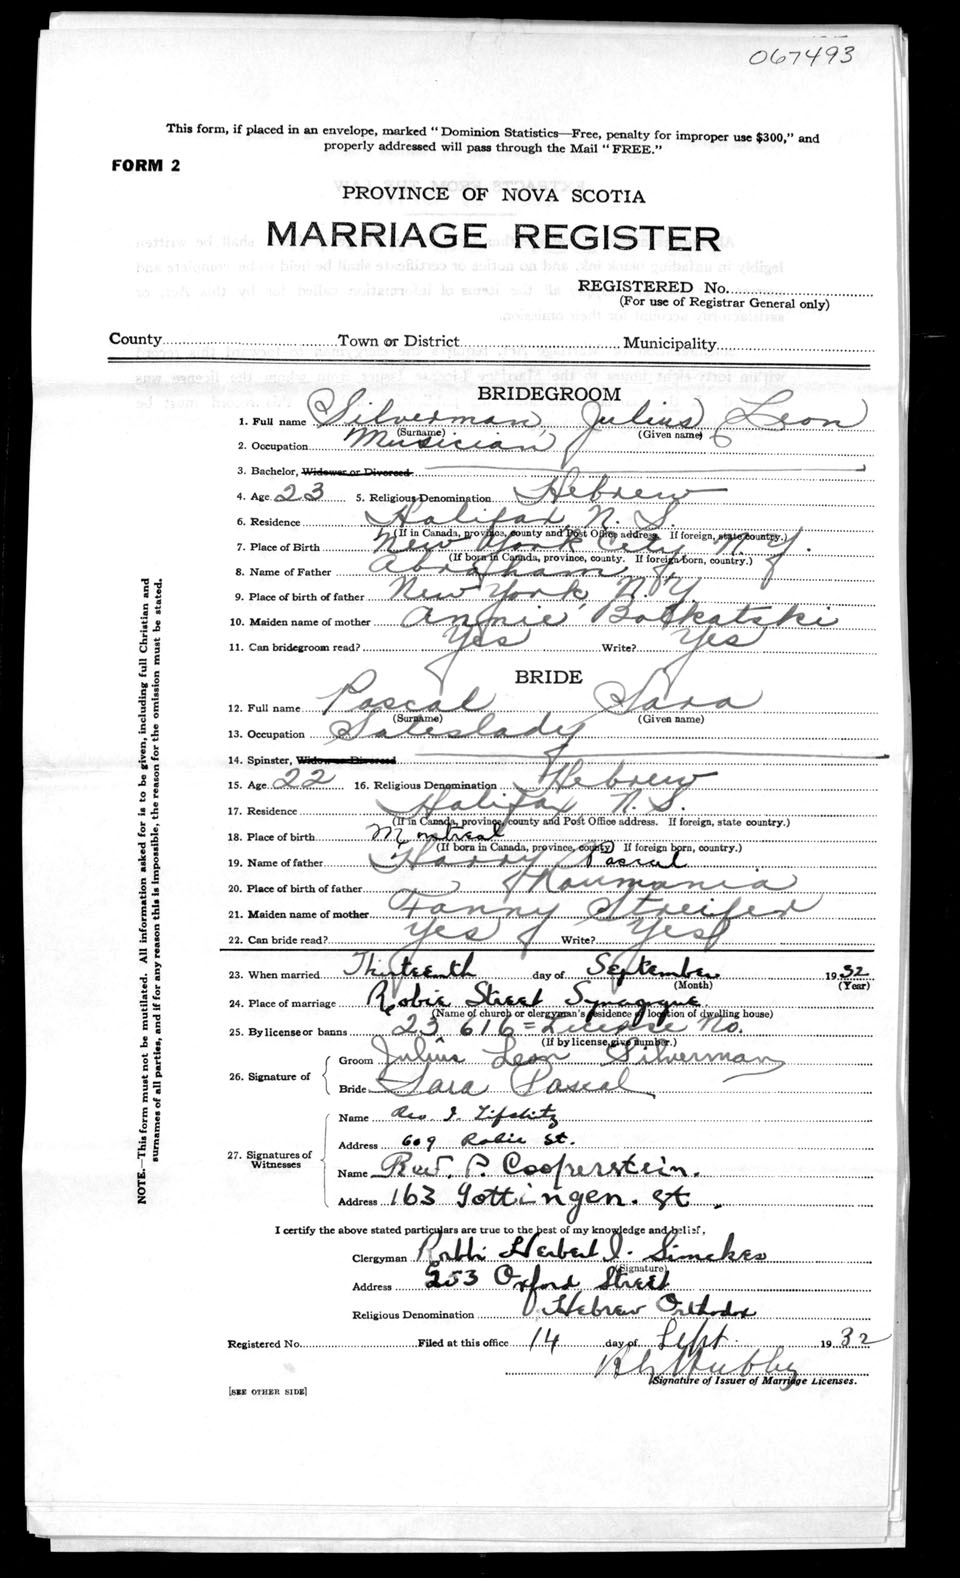 067493
This form, if placed in an envelope, marked "Dominion Statistics—Free, penalty for improper use $300," and
properly addressed will pass through the Mail "FREE."
FORM 2
PROVINCE OF NOVA SCOTIA
MARRIAGE REGISTER
REGISTERED No.
(For use of Registrar General only)
County Town or District Municipality
BRIDEGROOM
1. Full name Silverman, Julius Leon
(Surname) (Given name)
2. Occupation Musician
3. Bachelor, Widower or Divorced
4. Age 23 5. Religious Denomination Hebrew
6. Residence Halifax, N. S.
(If in Canada, province, county and Post Office address. If foreign, state country.)
7. Place of Birth New York City, N. Y.
(If born in Canada, province, county. If foreign born, country.)
8. Name of Father Abraham
9. Place of birth of father New York, N.Y.
10. Maiden name of mother Annie
11. Can bridegroom read? Yes Write? Yes
BRIDE
12. Full name Pascal Sara
(Surname) (Given name)
13. Occupation Saleslady
14. Spinster, Widow or Divorced
15. Age 22 16. Religious Denomination Hebrew
17. Residence Halifax N. S.
(If in Canada, province, county and Post Office address. If foreign, state country.)
18. Place of birth Montreal
(If born in Canada, province, county) If foreign born, country.)
19. Name of father Harry Pascal
20. Place of birth of father Roumania
21. Maiden name of mother Fanny Streifer
22. Can bride read? Yes Write? Yes
23. When married Thirteenth day of September 1932
(Month) (Year)
24. Place of marriage Robie Street Synagogue
(Name of church or clergyman's residence or location of dwelling house)
25. By license or banns 23616 = License No.
(If by license, give number.)
26. Signature of
Groom Julius Leon Silverman
Bride Sara Pascal
27. Signatures of Witnesses
Name Rev. I. Lifshitz
Address 609 Robie St.
Name Rev. P. Cooperstein.
Address 163 Gottingen. St.
I certify the above stated particulars are true to the best of my knowledge and belief,
Clergyman Rabbi Herbert I. Simckes
(Signature)
Address 253 Oxford Street
Religious Denomination Hebrew Orthodox
Registered No. Filed at this office 14 day of Sept. 1932
Signature of Issuer of Marriage Licenses.
[SEE OTHER SIDE]
NOTE.—This form must not be mutilated. All information asked for is to be given, including full Christian and
surnames of all parties, and if for any reason this is impossible, the reason for the omission must be stated.